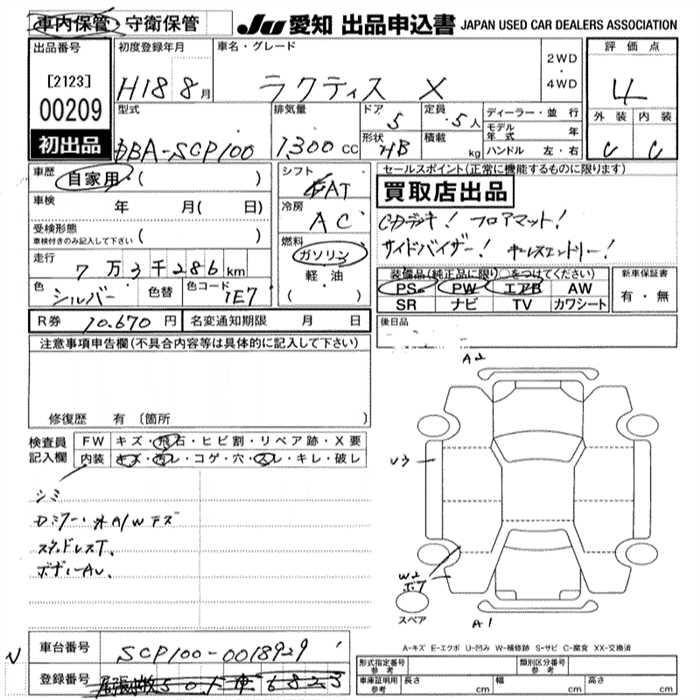 車内保管・守衛保管
JU 愛知 出品申込書 JAPAN USED CAR DEALERS ASSOCIATION
出品番号
[2123]
00209
初出品
初度登録年月
H18 8月
車名・グレード
ラクティス X
2WD
・
4WD
評価点
4
外装 内装
C C
型式
DBA-SCP100
排気量
1,300 CC
ドア 5
形状 HB
定員 5人
積載 kg
ディーラー・並行
モデル年式 年
ハンドル 左・右
車歴 自家用・( )
車検 年 月( 日)
受検形態
車検付きのみ記入して下さい ( )
走行
7万3千286km
色 シルバー 色替 色コード 1E7
シフト
FAT
冷房
AC
燃料
ガソリン
軽・油
・( )
セールスポイント(正常に機能するものに限ります)
買取店出品
CDデッキ! フロアマット!
サイドバイザー! キーレスエントリー!
装備品(純正品に限り)○をつけてください
PS PW エアB AW
SR ナビ TV カワシート
新車保証書
有・無
R券 10.670円 名変通知期限 月 日
後日品
注意事項申告欄(不具合内容等は具体的に記入して下さい)
修復歴 有 〔箇所 〕
検査員
記入欄
FW キズ・飛石・ヒビ割・リペア跡・X要
内装 キズ・汚レ・コゲ・穴・スレ・キレ・破レ
シミ
Dミラー・外A/Wキズ
スタッドレスT、
ボデーAU、
A2
U3
W2
ボワ
スペア
A1
A-キズ E-エクボ U-凹み W-補修跡 S-サビ C-腐食 XX-交換済
N
車台番号 SCP100-0018929
登録番号
形式指定番号
参考
類別区分番号
参考
車庫証明用
参考
長さ cm 幅 cm 高さ cm